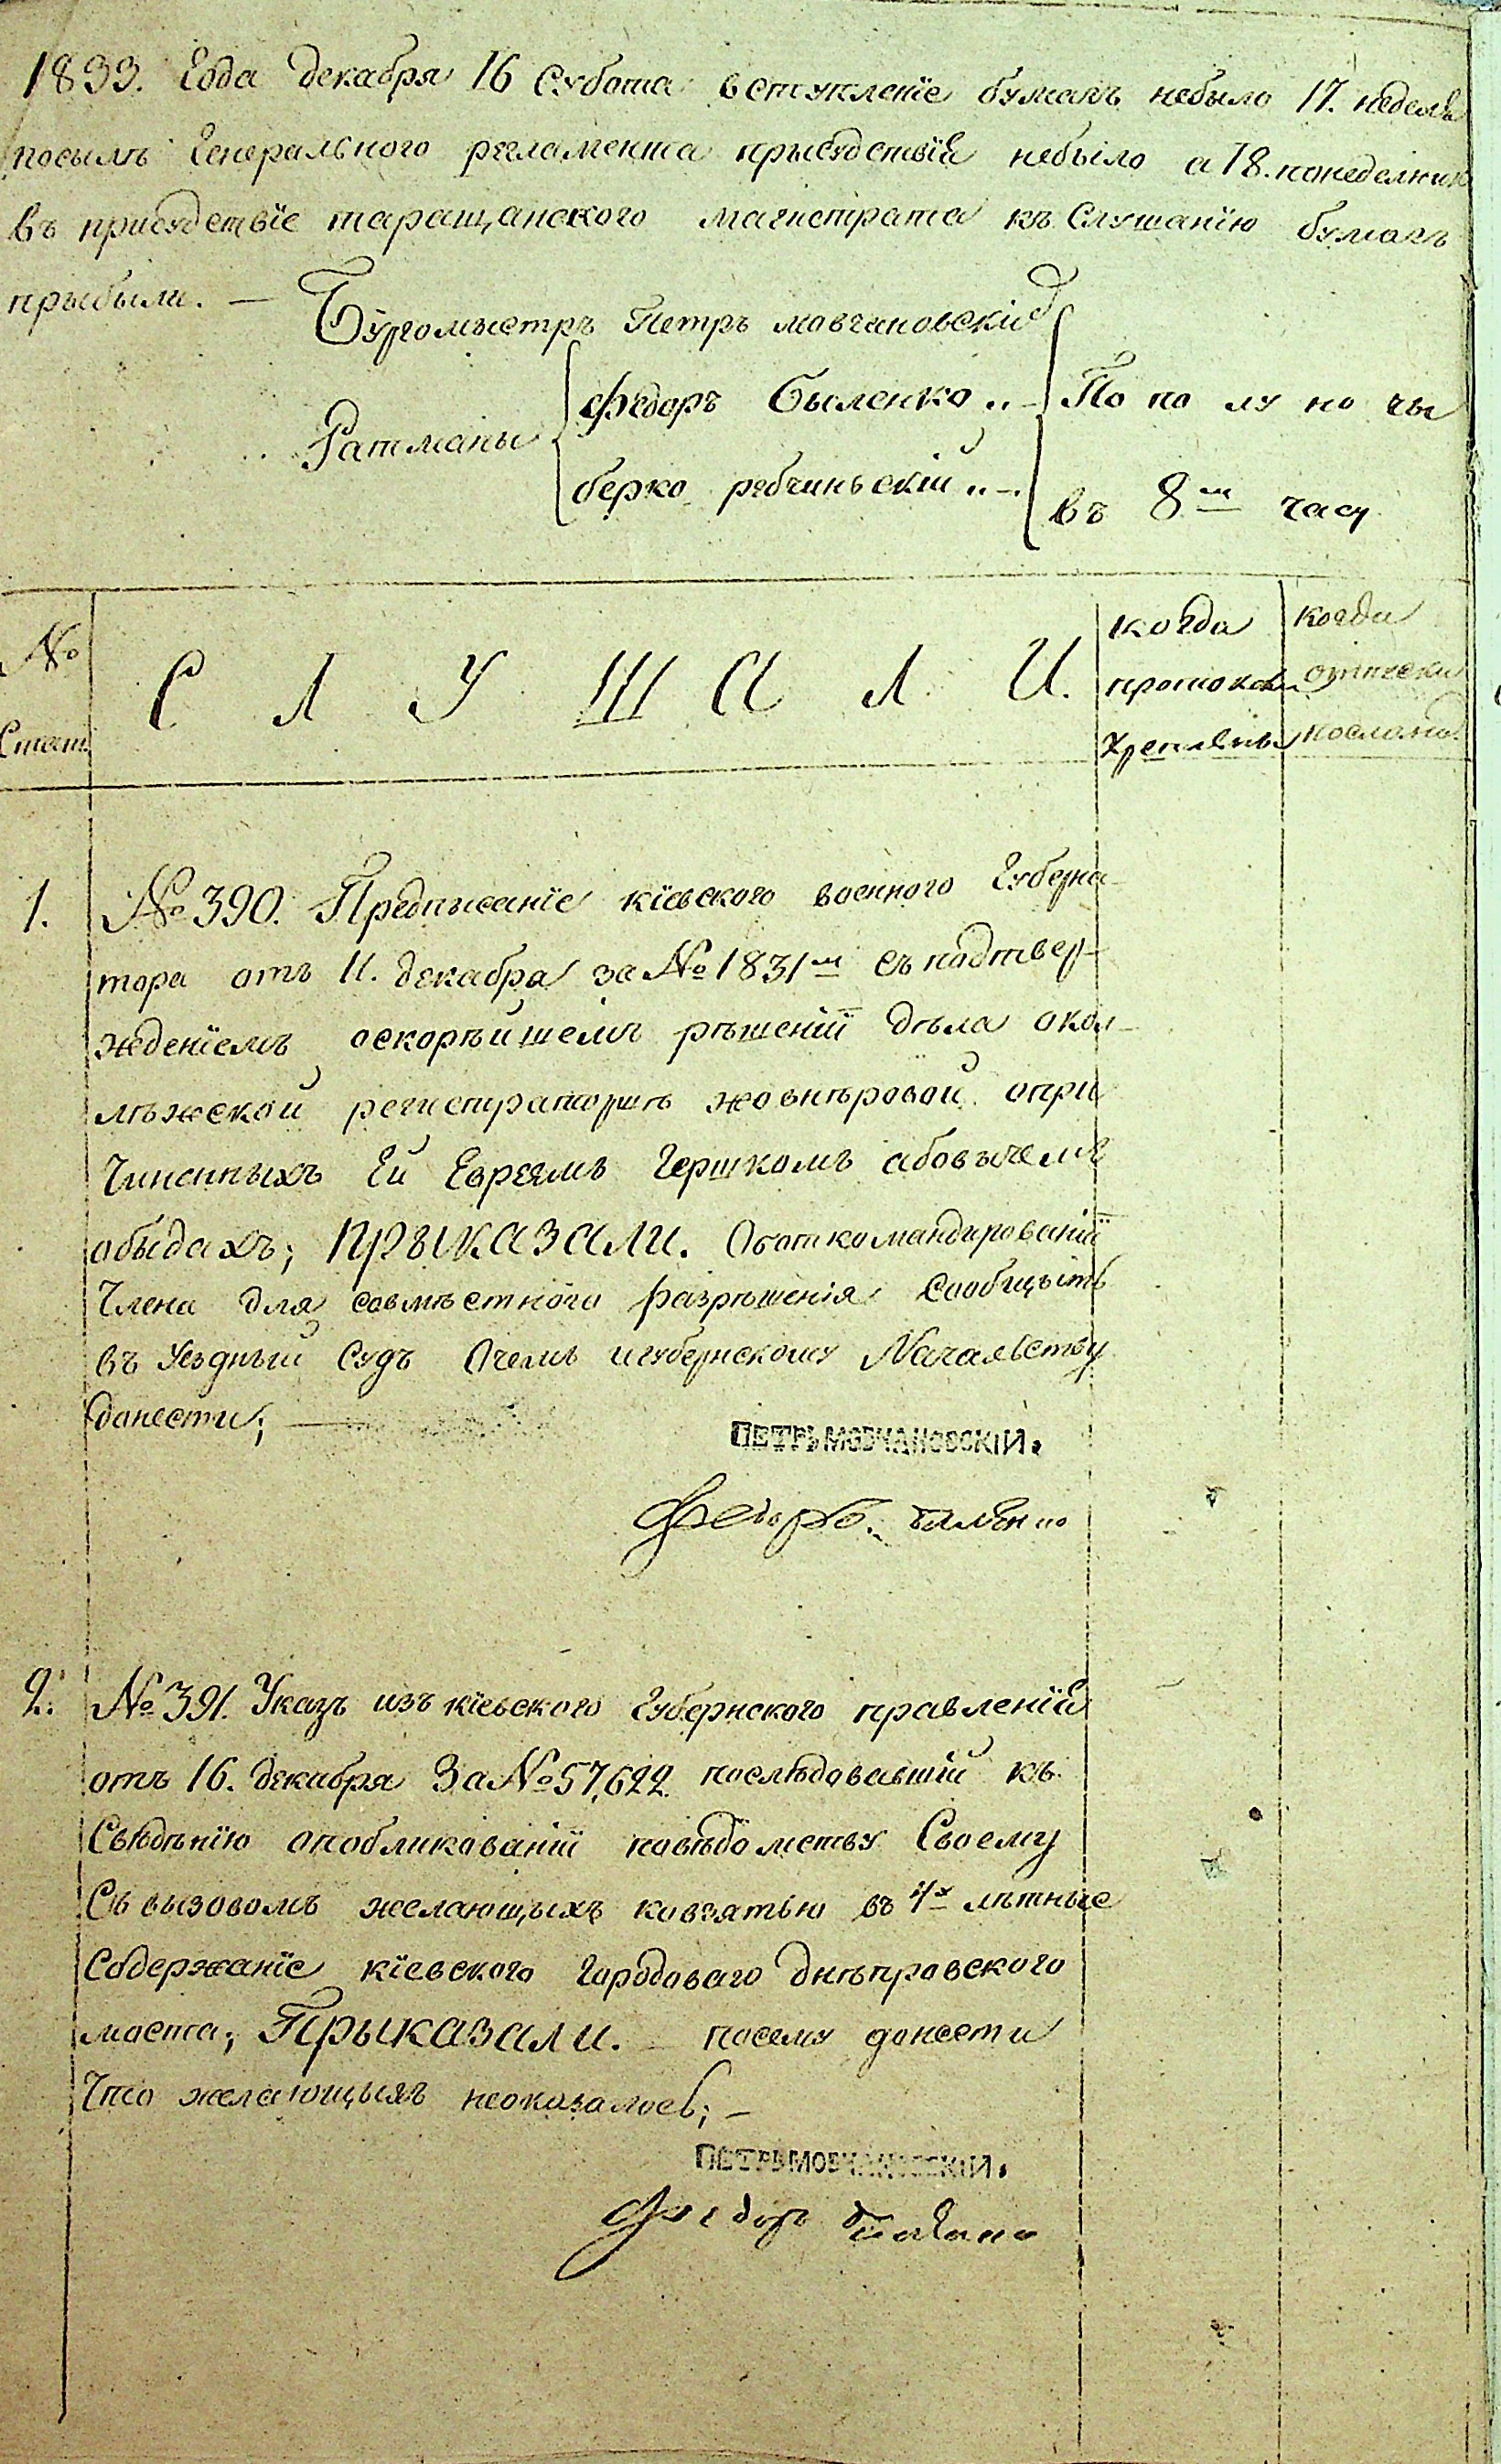 1833. Года декабря 16 субота вступленіе бумагъ небыло 17. неделя
посылѣ Генерального регламента прысудствія небыло а 18. понеделник
въ присудствіе таращанского магистрата къ Слушанію бумагъ
прыбыли. —
Бургомыстръ Петръ мовчановскій
Ратманы
федоръ быленко
берко рябчиньскій
По полуночы
въ 8м часу
№
Стат.
СЛУШАЛИ.
когда
протокол
Когда
отпуски
посланы
1.
№ 390. Предпысаніе кіевского военного Губерна-
тора отъ 11. декабра за № 1831м съ подтвер-
жденіемъ оскорѣйшемъ рѣшеніи дѣла окол-
лѣжской регистраторшѣ жовнѣровой опри
Чиненныхъ Ей Евреемъ Гершкомъ абовычемъ
обыдахъ; ПРЫКАЗАЛИ. Оботкомандированіи
Члена для совмѣстного разрѣшенія Сообщыть
въ Уездный Судъ Очемъ игубернскому Начальству
данести; —
ПЕТРЪ МОВЧАНОВСКІЙ.
Федоръ былѣнко
2.
№ 391. Указъ изъ кіевского Губернского правленія
отъ 16. декабря За № 57,622 послѣдовавшій къ
Свѣдѣнію опобликованіи повѣдомству Своему
Съ вызовомъ желающыхъ ковзятью въ 4х лѣтные
Содержаніе кіевского Городоваго днѣпровского
моста; Прыказали. — посему донести
Что желающыхъ неоказалось; —
ПЕТРЪ МОВЧАНОВСКІЙ.
Федоръ былѣнко